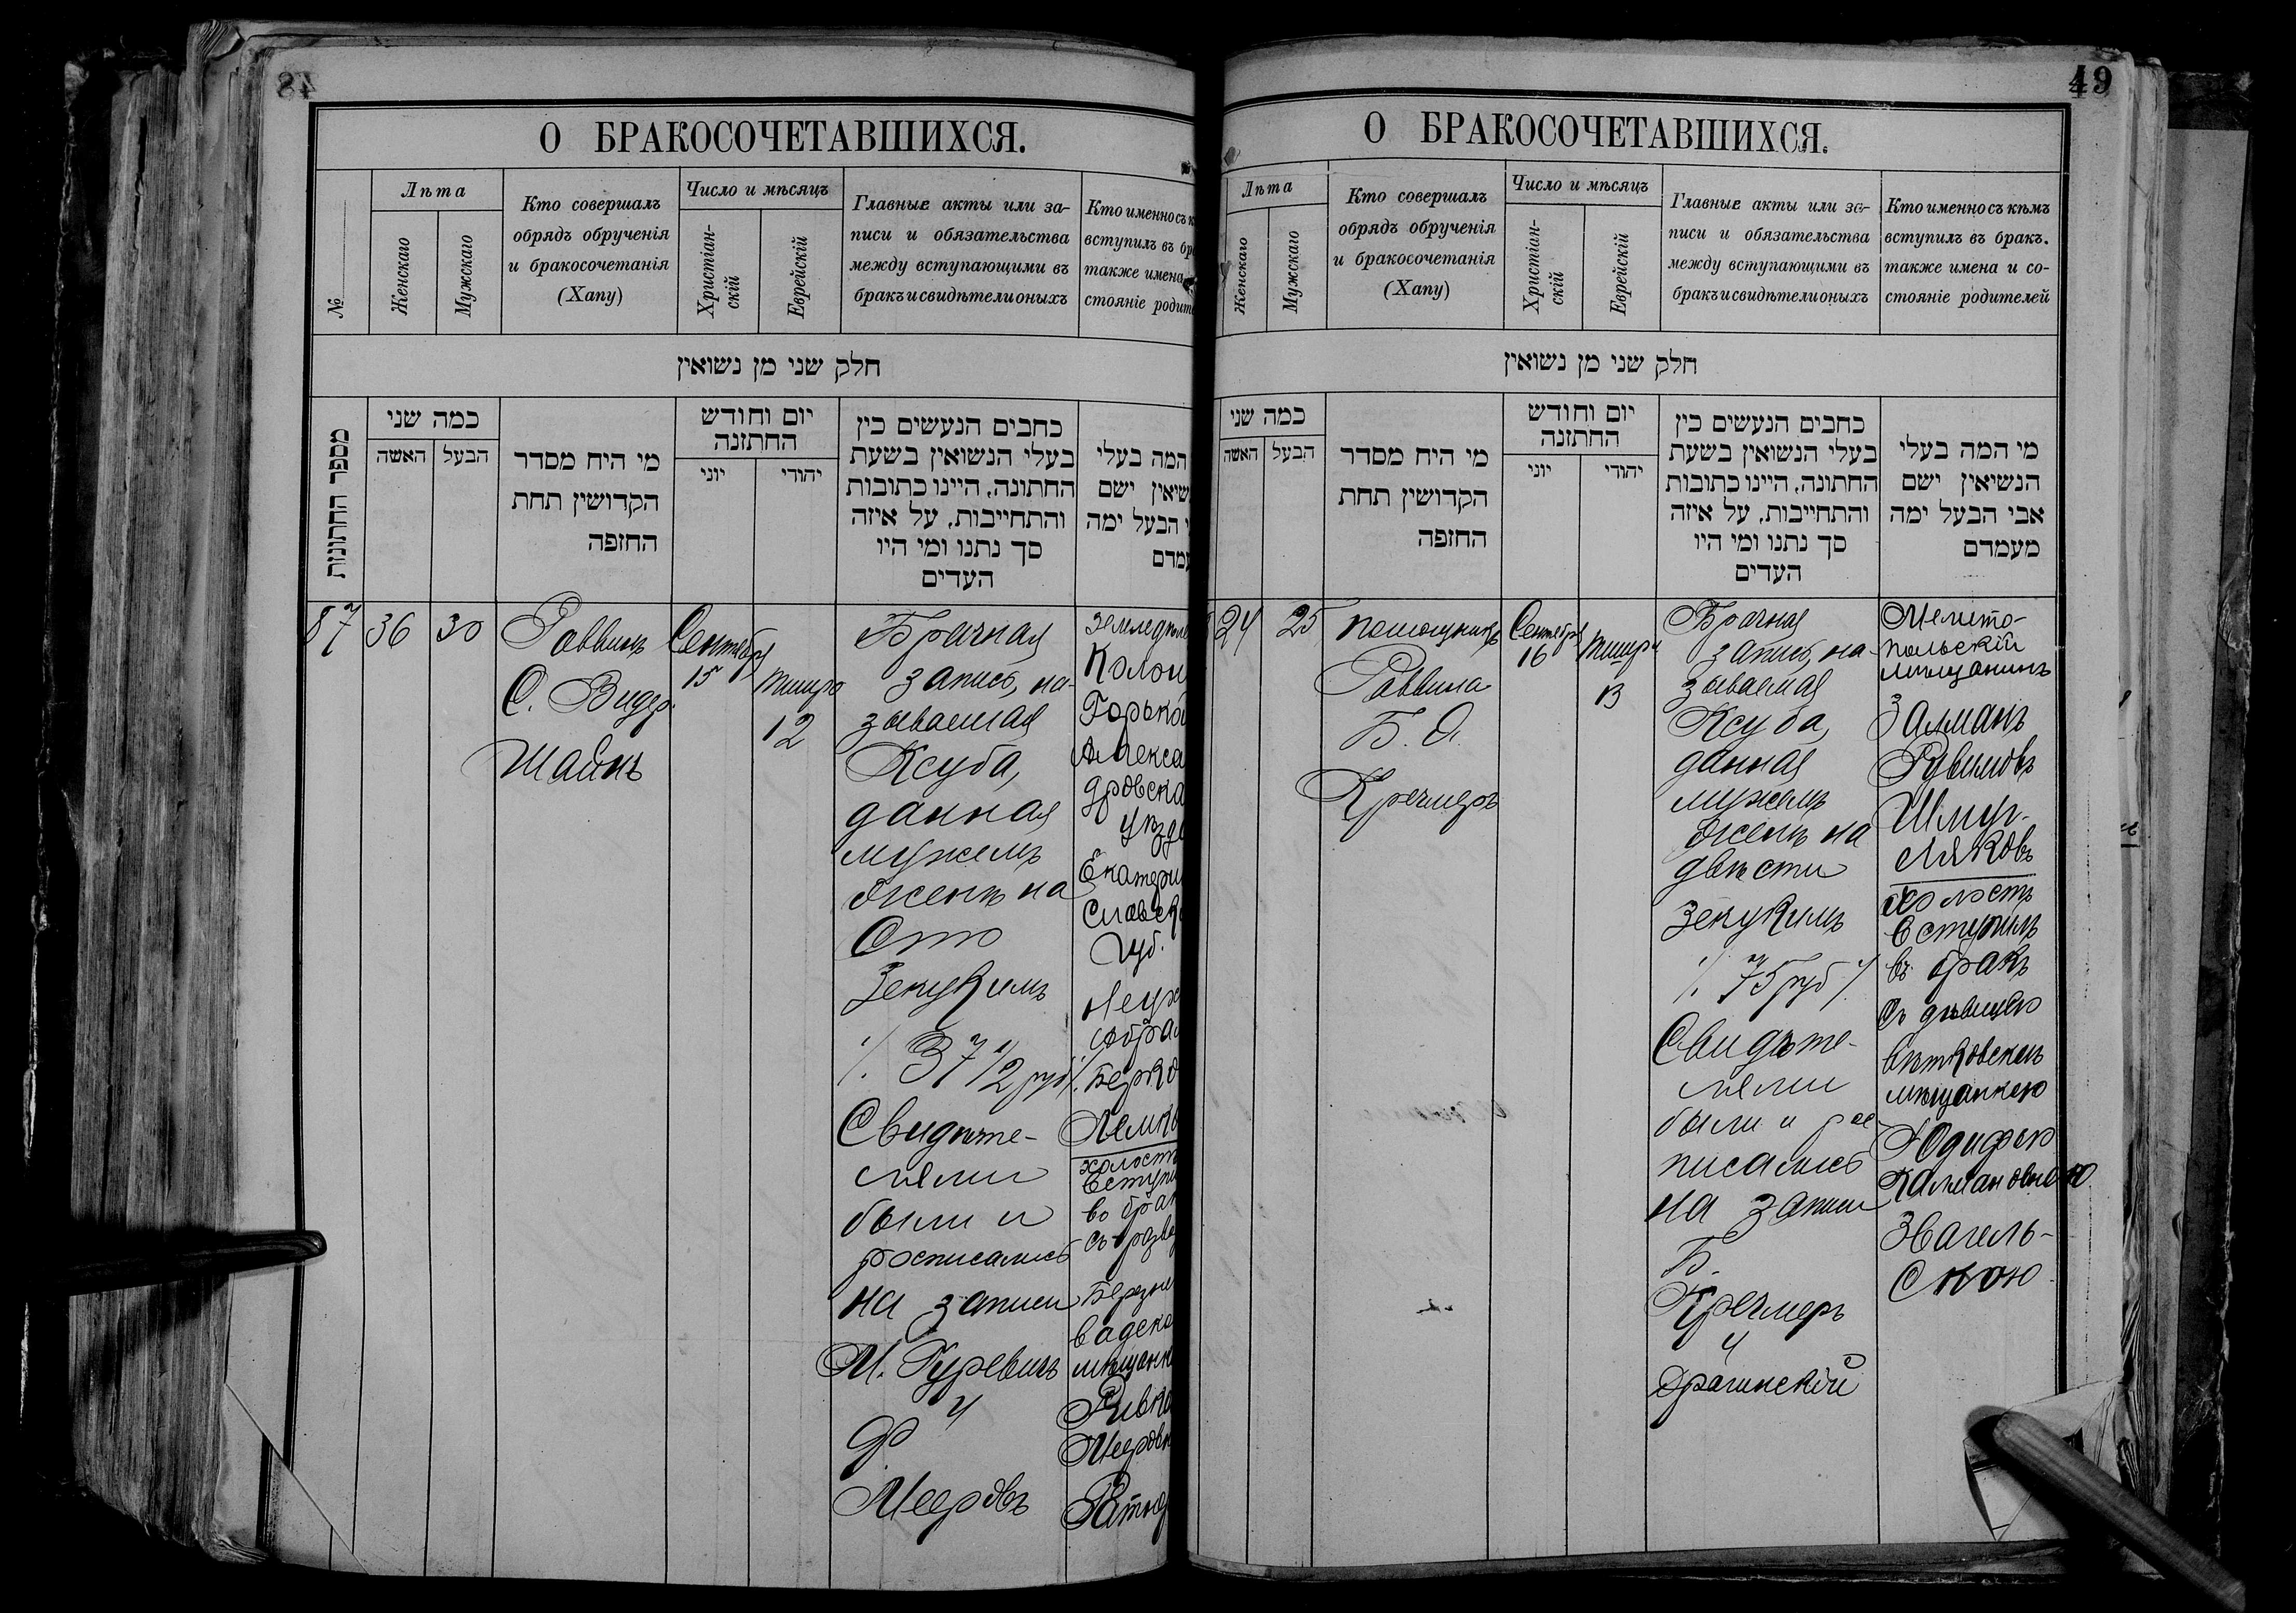 48
О БРАКОСОЧЕТАВШИХСЯ.
№
Лѣта
Женскаго
Мужскаго
Кто совершалъ
обрядъ обрученія
и бракосочетанія
(Хапу)
Число и мѣсяцъ
Христіан-
скій
Еврейскій
Главные акты или за-
писи и обязательства
между вступающими въ
бракъ и свидѣтели оныхъ
Кто именно съ к
вступилъ въ бр
также имена
стояніе родит
חלק שני מן נשואין
מספר החתונות
כמה שני
האשה
הבעל
מי היח מסדר
הקדושין תחת
החופה
יום וחודש
החתונה
יוני
יהודי
כתבים הנעשים בין
בעלי הנשואין בשעת
החתונה, היינו כתובות
והתחייבות, על איזה
סך נתנו ומי היו
העדים
המה בעלי
שיאין ישם
י הבעל ימה
עמדם
87
36
30
Раввинъ
С. Видер.
Шайнъ
Сентября
15
Тишри
12
Брачная
запись, на-
зываемая
Ксуба,
данная
мужемъ
женѣ на
Сто
Зекукимъ
/. 37 1/2 руб /.
Свидѣте-
лями
были и
росписались
на записи
М. Гуревичъ
и
Ф.
Мееровъ
Земледѣле
Колон
Горькой
Алекса
дровска
уѣзда
Екатери
славск
Губ.
Абра
Берко
холостъ
вступи
въ брак
съ разве
Березне
вадско
мѣщанк
Ривко
Мееровн
49
О БРАКОСОЧЕТАВШИХСЯ.
Лѣта
Женскаго
Мужскаго
Кто совершалъ
обрядъ обрученія
и бракосочетанія
(Хапу)
Число и мѣсяцъ
Христіан-
скій
Еврейскій
Главные акты или за-
писи и обязательства
между вступающими въ
бракъ и свидѣтели оныхъ
Кто именно съ кѣмъ
вступилъ въ бракъ.
также имена и со-
стояніе родителей
חלק שני מן נשואין
כמה שני
האשה
הבעל
מי היח מסדר
הקדושין תחת
החופה
יום וחודש
החתונה
יוני
יהודי
כתבים הנעשים בין
בעלי הנשואין בשעת
החתונה, היינו כתובות
והתחייבות, על איזה
סך נתנו ומי היו
העדים
מי המה בעלי
הנשיאין ישם
אבי הבעל ימה
מעמדם
24
25
Помощникъ
Раввина
Б. А.
Кречмеръ
Сентября
16
Тишри
13
Брачная
запись, на-
зываемая
Ксуба,
данная
мужемъ
женѣ на
двѣсти
Зекукимъ
/. 75 руб /.
Свидѣте-
лями
были и рос-
писались
на записи
Б.
Кречмеръ
и
Драгинскій
Мелито-
польскій
мѣщанинъ
Залманъ
Рувимовъ
Шмуг-
ляковъ
холостъ
вступилъ
въ бракъ
съ дѣвицею
Вѣтковскою
мѣщанкою
Юдифью
Калмановною
Звагель-
Скою